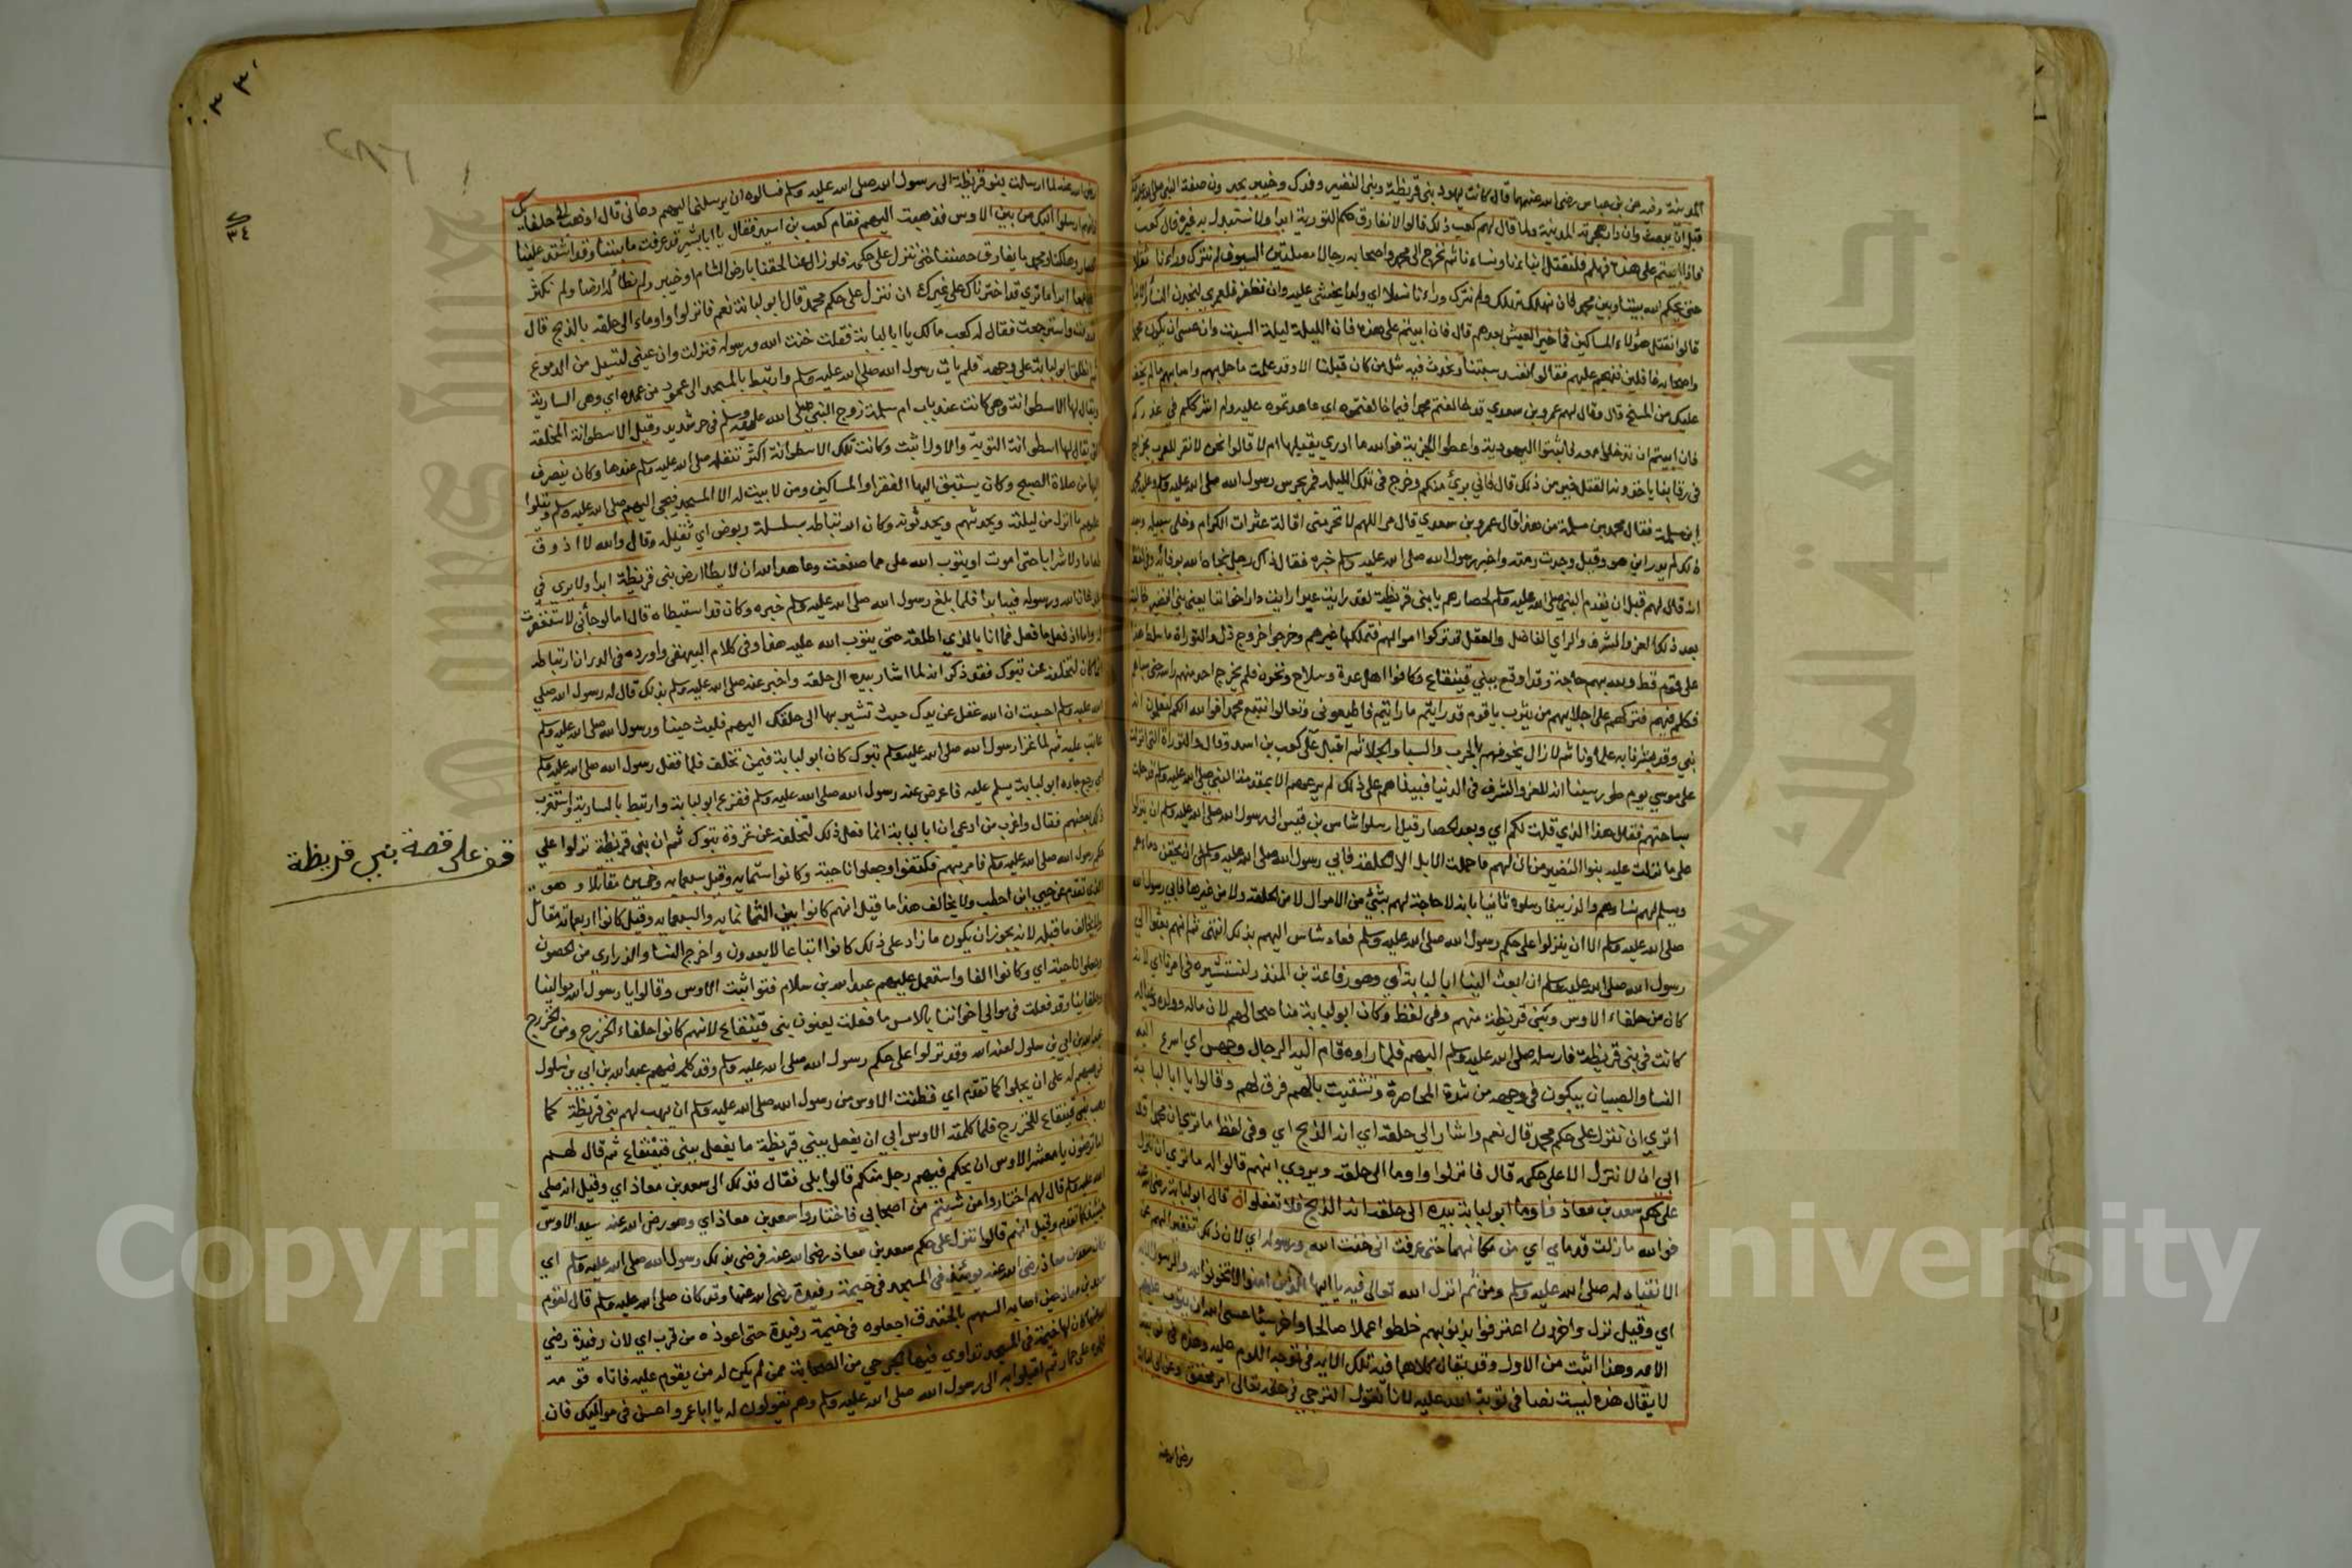 المدينة وفيه عن بن عباس رضي الله عنهما قال كانت يهود بني قريظة وبني النضير وفدك وخيبر يجدون صفة النبي صلى الله عليه
قبل ان يبعث وان دار هجرته المدينة ولما قال لهم كعب ذلك قالوا لا نفارق حكم التورية ابدا ولا نستبدل به غيره قال كعب
فاذا ابيتم على هذه فهلم فلنقتل ابناءنا ونساءنا ثم نخرج الى محمد واصحابه رجالا مصلتين السيوف لم نترك وراءنا ثقلا
حتى يحكم الله بيننا وبين محمد فان نهلك نهلك ولم نترك وراءنا نسلا اي ولدا يخشى عليه وان نظفر فلعمري لنجدن النساء
قالوا نقتل هؤلاء المساكين فما خير العيش بعدهم قال فان ابيتم على هذه فان الليلة ليلة السبت وان عسى ان يكون محمد
واصحابه غافلين فقالوا نفسد سبتنا ونحدث فيه مثل من كان قبلنا الا وقد علمت ما حل بهم
عليك من المسخ قال وقال لهم عمرو بن سعدي قد خالفتم محمدا فيما خالفتموه اي عاهدتموه عليه ولم اشرككم في غدركم
فان ابيتم ان تدخلوا معه فاثبتوا على اليهودية واعطوا الجزية فوالله ما ادري يقبلها ام لا قالوا نحن لا نقر للعرب بخراج
في رقابنا ياخذونه القتل خير من ذلك قال فاني بريء منكم وخرج في تلك الليلة فمر بحرس رسول الله صلى الله عليه وسلم وعليه محمد
ابن مسلمة فقال محمد بن مسلمة من هذا قال عمرو بن سعدي قال مر اللهم لا تحرمني اقالة عثرات الكرام وخلى سبيله وبعد
ذلك لم يدر اين هو وقيل وجدت رمته واخبر رسول الله صلى الله عليه وسلم خبره فقال ذاك رجل نجاه الله بوفائه وفي لفظ
انه قال لهم قبل ان يقدم النبي صلى الله عليه وسلم لحصارهم يا بني قريظة لقد رايت عبرا رايت دار اخواننا يعني بني النضير خالية
بعد ذلك العز والشرف والراي الفاضل والعقل تركوا اموالهم فتملكها غيرهم وخرجوا خروج ذل والتوراة ما سلط هذا
على قوم قط ولله بهم حاجة وقد اوقع ببني قينقاع وكانوا اهل عدة وسلاح ونخوة فلم يخرج احد منهم راسه حتى سباهم
فكلم فيهم فتركهم على اجلائهم من يثرب يا قوم قد رايتم ما رايتم فاطيعوني وتعالوا نتبع محمدا فوالله انكم لتعلمون انه
نبي وقد بشرنا به علماؤنا ثم لا زال يخوفهم بالحرب والسبا والجلا ثم اقبل على كعب بن اسد وقال والتوراة التي انزلت
على موسى يوم طور سينا انه للعز والشرف في الدنيا فبينما هم على ذلك لم يرعهم الا بمقدمة النبي صلى الله عليه وسلم قد حلت
بساحتهم فقال هذا الذي قلت لكم اي وبعد الحصار قيل ارسلوا شاس بن قيس الى رسول الله صلى الله عليه وسلم ان ينزلوا
على ما نزلت عليه بنوا النضير من ان لهم ما حملت الابل الا الحلقة فابى رسول الله صلى الله عليه وسلم ان يحقن دماءهم
ويسلم لهم نساءهم والذرية فارسلوه ثانيا بانه لا حاجة لهم بشيء من الاموال لا من الحلقة ولا من غيرها فابى رسول الله
صلى الله عليه وسلم الا ان ينزلوا على حكم رسول الله صلى الله عليه وسلم فعاد شاس اليهم بذلك انتهى ثم انهم بعثوا الى
رسول الله صلى الله عليه وسلم ان ابعث الينا ابا لبابة اي وهو رفاعة بن المنذر لنستشيره في امرنا اي لانه
كان من حلفاء الاوس وبني قريظة منهم وفي لفظ وكان ابو لبابة مناصحا لهم لان ماله وولده وعياله
كانت في بني قريظة فارسله صلى الله عليه وسلم اليهم فلما راوه قام اليه الرجال وجهش اي اسرع اليه
النسا والصبيان يبكون في وجهه من شدة المحاصرة وتشتيت بالهم فرق لهم وقالوا يا ابا لبابة
اترى ان ننزل على حكم محمد قال نعم واشار الى حلقه اي انه الذبح اي وفي لفظ ما ترى ان محمدا قد
ابى ان لا ننزل الا على حكمه قال فانزلوا واوما الى حلقه ويروى انهم قالوا له ما ترى ان ننزل
على حكم سعد بن معاذ فاوما ابو لبابة بيده الى حلقه انه الذبح فلا تفعلوا قال ابو لبابة رضي الله عنه
فوالله ما زلت قدماي اي من مكانهما حتى عرفت اني خنت الله ورسوله اي لان ذلك تنفيرا لهم عن
الانقياد له صلى الله عليه وسلم ومن ثم انزل الله تعالى فيه يا ايها الذين امنوا لا تخونوا الله والرسول الاية
اي وقيل نزل واخرون اعترفوا بذنوبهم خلطوا عملا صالحا واخر سيئا عسى الله ان يتوب عليهم
الاية وهذا اثبت من الاول وقد يقال كلاهما فيه تلك الاية في توجه اللوم عليه وهذه في توبته
لا يقال هذه ليست نصا في توبة الله عليه لانا نقول الترجي في حقه تعالى امر محقق وعن ابي لبابة
رضي الله عنه
رضي الله عنه لما ارسلت بنو قريظة الى رسول الله صلى الله عليه وسلم فسالوه ان يرسلني اليهم دعاني قال اذهب الى حلفائك
فانهم ارسلوا اليك من بين الاوس فذهبت اليهم فقام كعب بن اسيد فقال يا ابا بشير قد عرفت ما بيننا وقد اشتد علينا
الحصار وهلكنا ومحمد يابى يفارق حصننا حتى ننزل على حكمه فلو زال عنا لحقنا بارض الشام او خيبر ولم نطأ له ارضا ولم نكثر
عليه جمعا ابدا ما ترى قد اخترناك على غيرك ان ننزل على حكم محمد قال ابو لبابة نعم فانزلوا واوماء الى حلقه بالذبح قال
فندمت واسترجعت فقال له كعب مالك يا ابا لبابة فقلت خنت الله ورسوله فنزلت وان عيني لتسيل من الدموع
ثم انطلق ابو لبابة على وجهه فلم يات رسول الله صلى الله عليه وسلم وارتبط بالمسجد الى عمود من عمده اي وهي السارية
ويقال لها الاسطوانة وهي كانت عند باب ام سلمة زوج النبي صلى الله عليه وسلم في حر شديد وقيل الاسطوانة المخلقة
التي يقال لها اسطوانة التوبة والاول اثبت وكانت تلك الاسطوانة اكثر تنفله صلى الله عليه وسلم عندها وكان ينصرف
اليها من صلاة الصبح وكان يستبق اليها الفقرا والمساكين ومن لا بيت له الا المسجد فيجي اليهم صلى الله عليه وسلم ويتلوا
عليهم ما انزل من ليلته ويحدثهم ويحدثونه وكان ارتباطه بسلسلة ربوض اي ثقيلة وقال والله لا اذوق
طعاما ولا شرابا حتى اموت او يتوب الله على مما صنعت وعاهد الله ان لا يطا ارض بني قريظة ابدا ولا يرى في
بلد خان الله ورسوله فيه ابدا فلما بلغ رسول الله صلى الله عليه وسلم خبره وكان قد استبطاه قال اما لو جاءني لاستغفرت
له واما اذ فعل ما فعل فما انا بالذي اطلقه حتى يتوب الله عليه هذا وفي كلام البيهقي واورده في الدر ان ارتباطه
انما كان لتخلفه عن تبوك فقد ذكر انه لما اشار بيده الى حلقه واخبر عنه صلى الله عليه وسلم بذلك قال له رسول الله صلى
الله عليه وسلم احسبت ان الله غفل عن يدك حيث تشير بها الى حلقك اليهم فلبث حينا ورسول الله صلى الله عليه وسلم
عاتب عليه ثم لما غزا رسول الله صلى الله عليه وسلم تبوك كان ابو لبابة فيمن تخلف فلما قفل رسول الله صلى الله عليه وسلم
اي رجع جاءه ابو لبابة يسلم عليه فاعرض عنه رسول الله صلى الله عليه وسلم ففزع ابو لبابة وارتبط بالسارية واستغرب
ذلك بعضهم فقال واغرب من ادعى ان ابا لبابة انما فعل ذلك لتخلفه عن غزوة تبوك ثم ان بني قريظة نزلوا على
حكم رسول الله صلى الله عليه وسلم فامر بهم فكتفوا وجعلوا ناحية وكانوا ستمائة وقيل سبعمائة وخمسين مقاتلا وهو
الذي تقدم عن حيي ابن اخطب ولا يخالف هذا ما قيل انهم كانوا بين الثمانمائة والسبعمائة وقيل كانوا اربعمائة مقاتل
ولا يخالف ما قبله لانه يجوز ان يكون ما زاد على ذلك كانوا اتباعا لا يعدون واخرج النسا والذراري من الحصون
وجعلوا ناحية اي وكانوا الفا واستعمل عليهم عبد الله بن سلام فتواثبت الاوس وقالوا يا رسول الله موالينا
وحلفاؤنا وقد فعلت في موالي اخواننا بالامس ما فعلت يعنون بني قينقاع لانهم كانوا حلفاء الخزرج ومن الخزرج
عبد الله بن ابي بن سلول لعنه الله وقد نزلوا على حكم رسول الله صلى الله عليه وسلم وقد كلمه فيهم عبد الله بن ابي بن سلول
فوهبهم له على ان يجلوا كما تقدم اي فظنت الاوس من رسول الله صلى الله عليه وسلم ان يهب لهم بني قريظة كما
وهب بني قينقاع للخزرج فلما كلمته الاوس ابى ان يفعل ببني قريظة ما يفعل ببني قينقاع ثم قال لهم
اما ترضون يا معشر الاوس ان يحكم فيهم رجل منكم قالوا بلى فقال فذلك الى سعد بن معاذ اي وقيل انه صلى
الله عليه وسلم قال لهم اختاروا من شئتم من اصحابي فاختاروا سعد بن معاذ اي وهو رضي الله عنه سيد الاوس
كما تقدم وقيل انهم قالوا ننزل على حكم سعد بن معاذ رضي الله عنه فرضي بذلك رسول الله صلى الله عليه وسلم اي
وكان سعد بن معاذ رضي الله عنه يومئذ في المسجد في خيمة رفيدة رضي الله عنها وقد كان صلى الله عليه وسلم قال لقوم
سعد بن معاذ حين اصابه السهم بالخندق اجعلوه في خيمة رفيدة حتى اعوذه من قرب اي لان رفيدة رضي
الله عنها كان لها خيمة في المسجد تداوي فيها الجرحى من الصحابة ممن لم يكن له من يقوم عليه فاتاه قومه
فحملوه على حمار ثم اقبلوا به الى رسول الله صلى الله عليه وسلم وهم يقولون له يا ابا عمرو احسن في مواليك فان
قف على قصة بني قريظة
٢٨٦
Copyright © King Saud University
جامعة الملك سعود